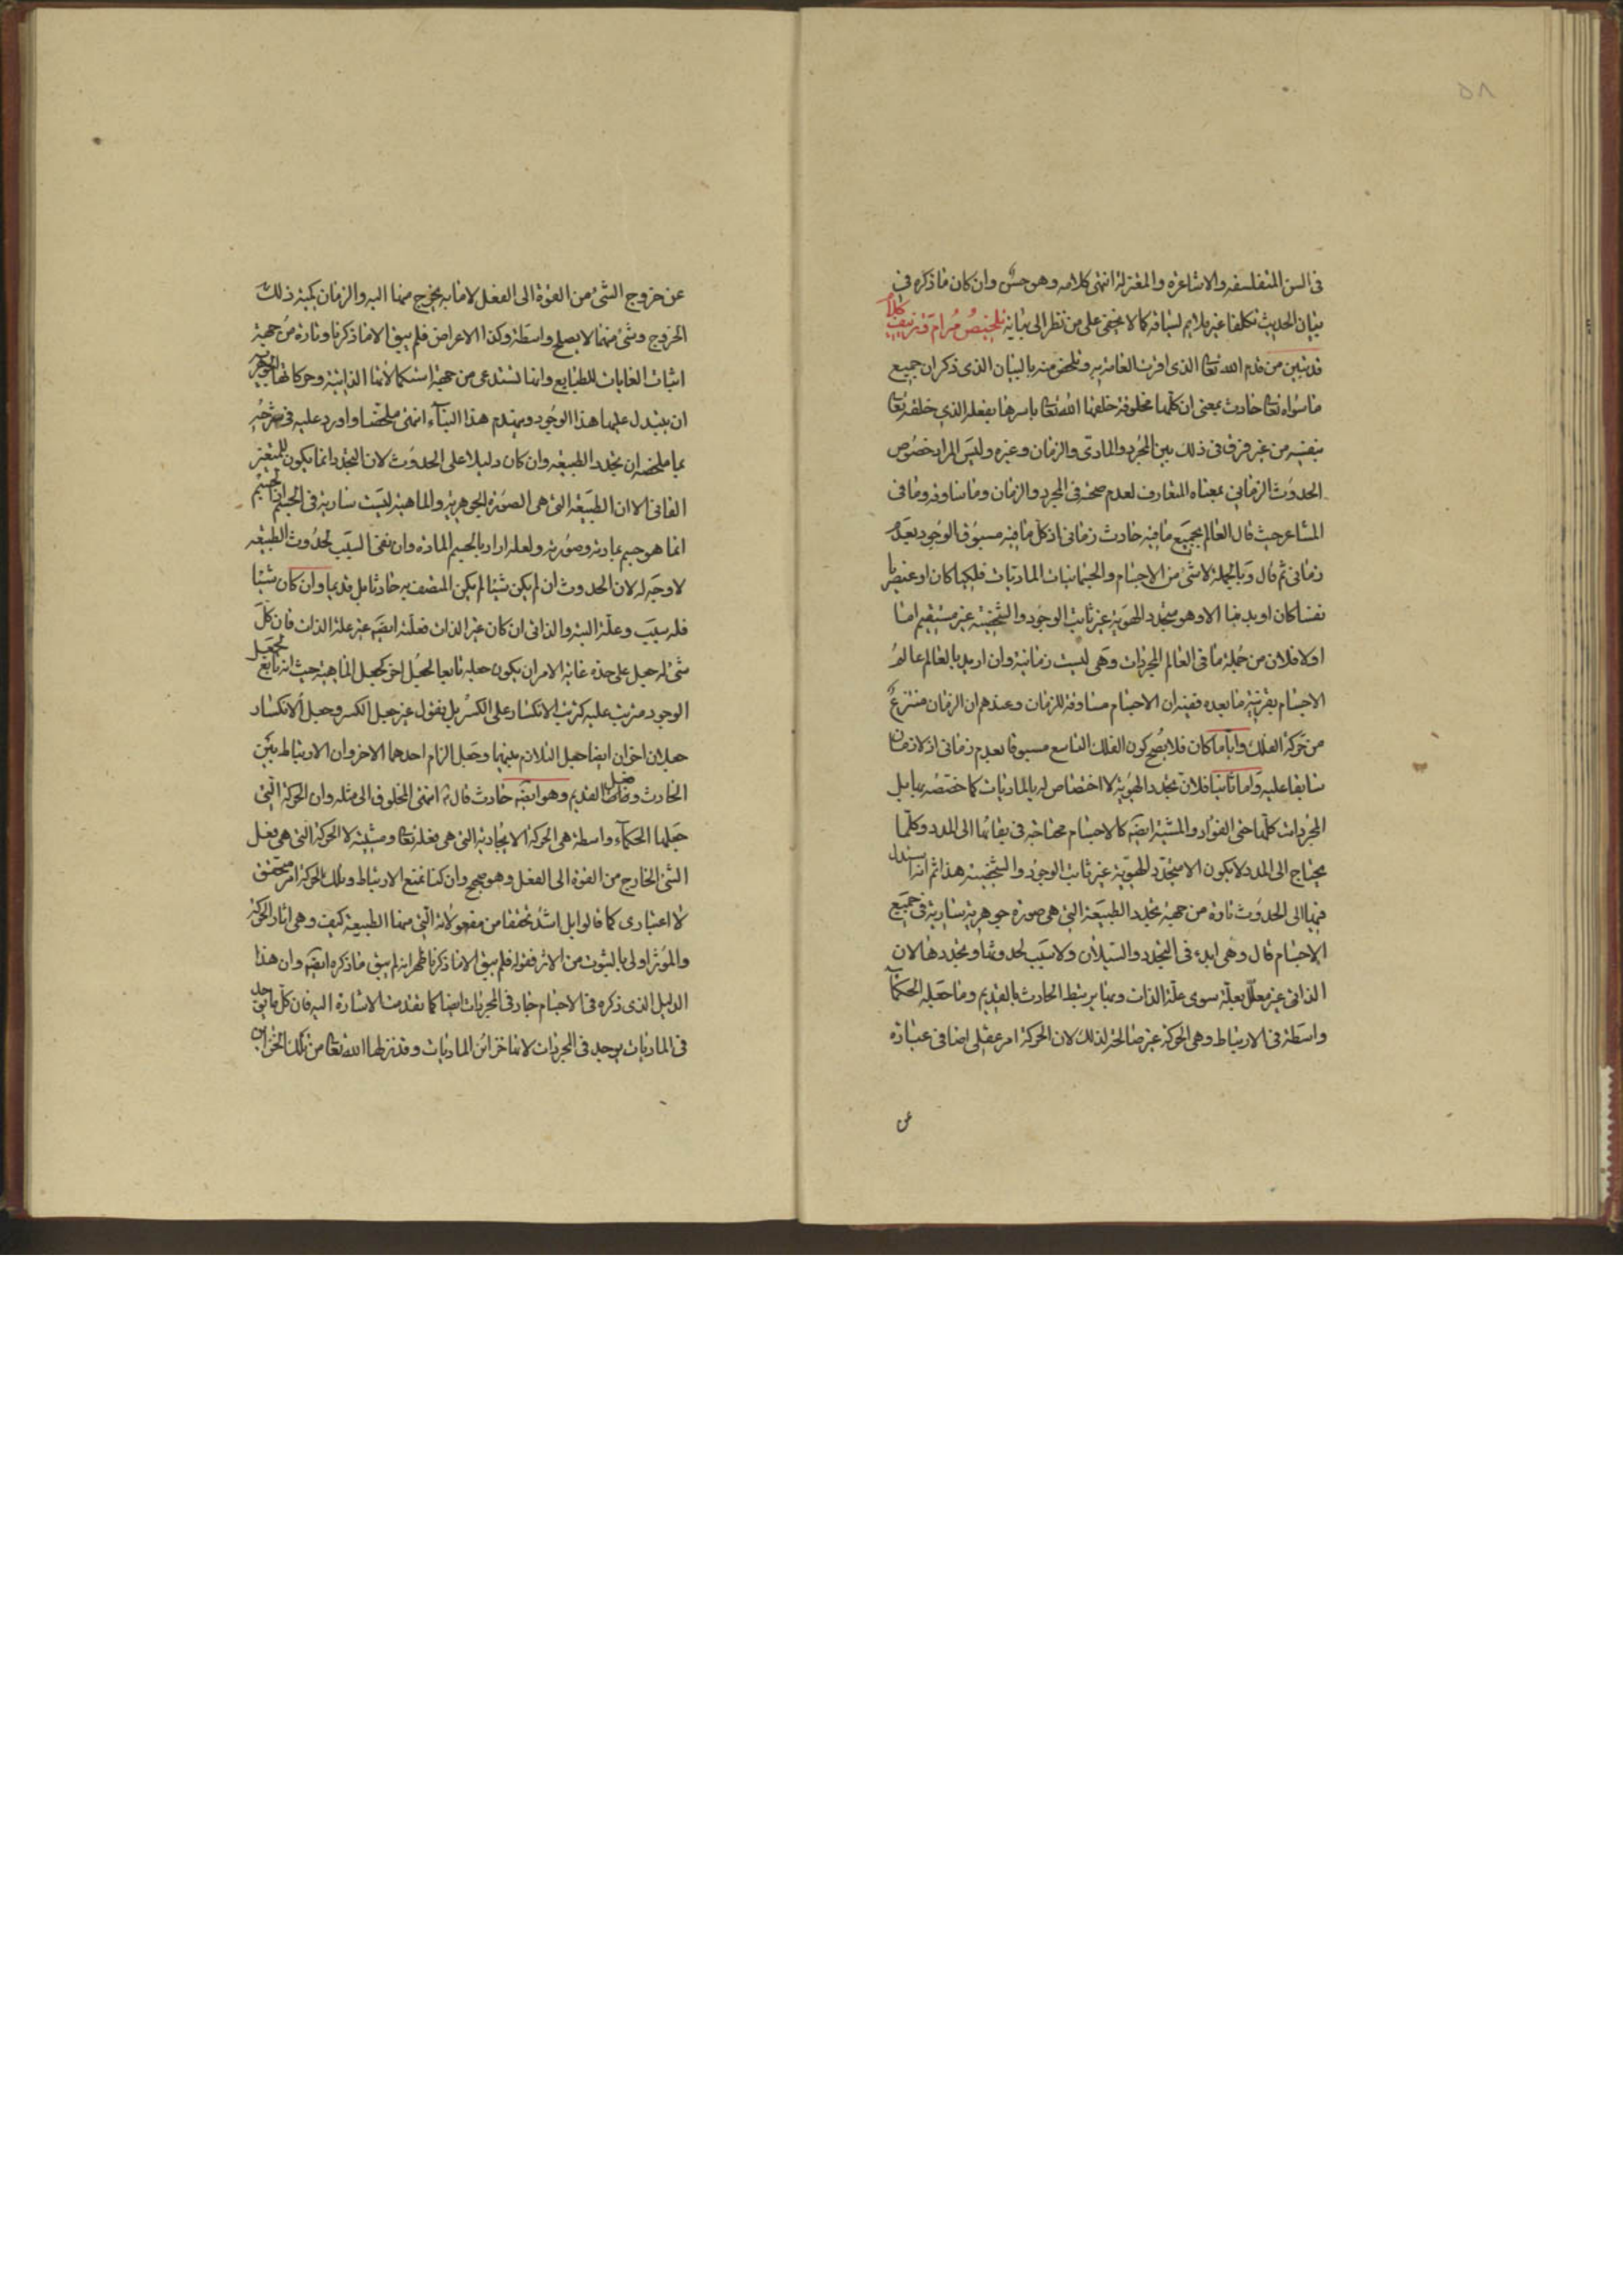 ٥٨
في السن المتفلسفه والاشاعره والمعتزلة انتهى كلامه وهو حسن وان كان ما ذكره في
بيان الحديث تكلفا غير ملايم لسياقه كما لا يخفى على من نظر الى بيانه تلخيص مرام وتزييف كلام
قد تبين من قدم الله تعا الذي اقرت العامة به وتلخص منه بالبيان الذي ذكر ان جميع
ما سواه تعا حادث بمعنى ان كلها مخلوقة خلقها الله تعا باسرها بفعله الذي خلقه تعا
بنفسه من غير فرق في ذلك بين المجرد والمادي والزمان وغيره وليس المراد خصوص
الحدوث الزماني بمعناه المتعارف لعدم صحته في المجرد والزمان وما ساوقه وما في
المشاعر حيث قال العالم بجميع ما فيه حادث زماني اذ كل ما فيه مسبوق الوجود بعدم
زماني ثم قال وبالجملة لا شئ من الاجسام والجسمانيات الماديات فلكيا كان او عنصريا
نفسا كان او بدنا الا وهو متجدد الهوية غير ثابت الوجود والشخصية غير مستقيم اما
اولا فلان من جملة ما في العالم المجردات وهي ليست زمانية وان اريد بالعالم عالم
الاجسام بقرينة ما بعده ففيه ان الاجسام مساوقة للزمان وعندهم ان الزمان منتزع
من حركة الفلك واياما كان فلا يصح كون الفلك التاسع مسبوقا بعدم زماني اذ لا زمان
سابقا عليه واما ثانيا فلان تجدد الهوية لا اختصاص له بالماديات كما خصصه بها بل
المجردات كلها حتى الفؤاد والمشية ايضه كالاجسام محتاجة في بقائها الى المدد وكلما
يحتاج الى المدد لا يكون الا متجدد الهوية غير ثابت الوجود والشخصية هذا ثم انه استدل
فيها الى الحدوث تارة من جهة تجدد الطبيعة التي هي صورة جوهرية سارية في جميع
الاجسام قال وهي ابدء في التجدد والسيلان ولا سبب لحدوثها وتجددها لان
الذاتي غير معلل بعلة سوى علة الذات وبها يرتبط الحادث بالقديم وما جعله الحكماء
واسطة في الارتباط وهي الحركة غير صالحة لذلك لان الحركة امر عقلي اضافي عبارة
عن
عن خروج الشئ من القوة الى الفعل لا ما به يخرج منها اليه والزمان كمية ذلك
الخروج وشئ منهما لا يصلح واسطة وكذا الاعراض فلم يبق الا ما ذكرنا وتارة من جهة
اثبات الغايات للطبايع وانها تستدعى من جهة استكمالاتها الذاتية وحركاتها الجوهرية
ان يتبدل عليها هذا الوجود وينهدم هذا البناء انتهى ملخصا واورد عليه في شرحه
بما ملخصه ان تجدد الطبيعه وان كان دليلا على الحدوث لان التجدد انما يكون للمتغير
الفاني الا ان الطبيعة التي هي الصورة الجوهرية والماهية ليست سارية في الجسم اذ الجسم
انما هو جسم بمادته وصورته ولعله اراد بالجسم المادة وان نفى السبب لحدوث الطبيعه
لا وجه له لان الحدوث ان لم يكن شيئا لم يكن المتصف به حادثا بل قديما وان كان شيئا
فله سبب وعلة البتة والذاتي ان كان غير الذات فعلته ايضه غير علة الذات فان كل
شئ له جعل على حدة غاية الامر ان يكون جعله تابعا لجعل اخر كجعل الماهية حيث انه تابع لجعل
الوجود مترتب عليه كترتب الانكسار على الكسر بل نقول غير جعل الكسر وجعل الانكسار
جعلان اخران ايضا جعل التلازم بينهما وجعل الزام احدهما الاخر وان الارتباط بين
الحادث وفعل القديم وهو ايضه حادث قال ع انتهى المخلوق الى مثله وان الحركة التي
جعلها الحكماء واسطة هي الحركة الايجادية التي هي فعله تعا ومشيته لا الحركة التي هي فعل
الشئ الخارج من القوة الى الفعل وهو صحيح وان كنا نمنع الارتباط وتلك الحركة امر متحقق
لا اعتباري كما قالوا بل اشد تحققا من مفعولاته التي منها الطبيعة كيف وهي اثار الحركة
والمؤثر اولى بالثبوت من الاثر فقوله فلم يبق الا ما ذكرنا ظهر انه لم يبق ما ذكره ايضه وان هذا
الدليل الذي ذكره في الاجسام جار في المجردات ايضا كما تقدمت الاشارة اليه فان كل ما يوجد
في الماديات يوجد في المجردات لانها خزائن الماديات وقد نزلها الله تعا من تلك الخزائن